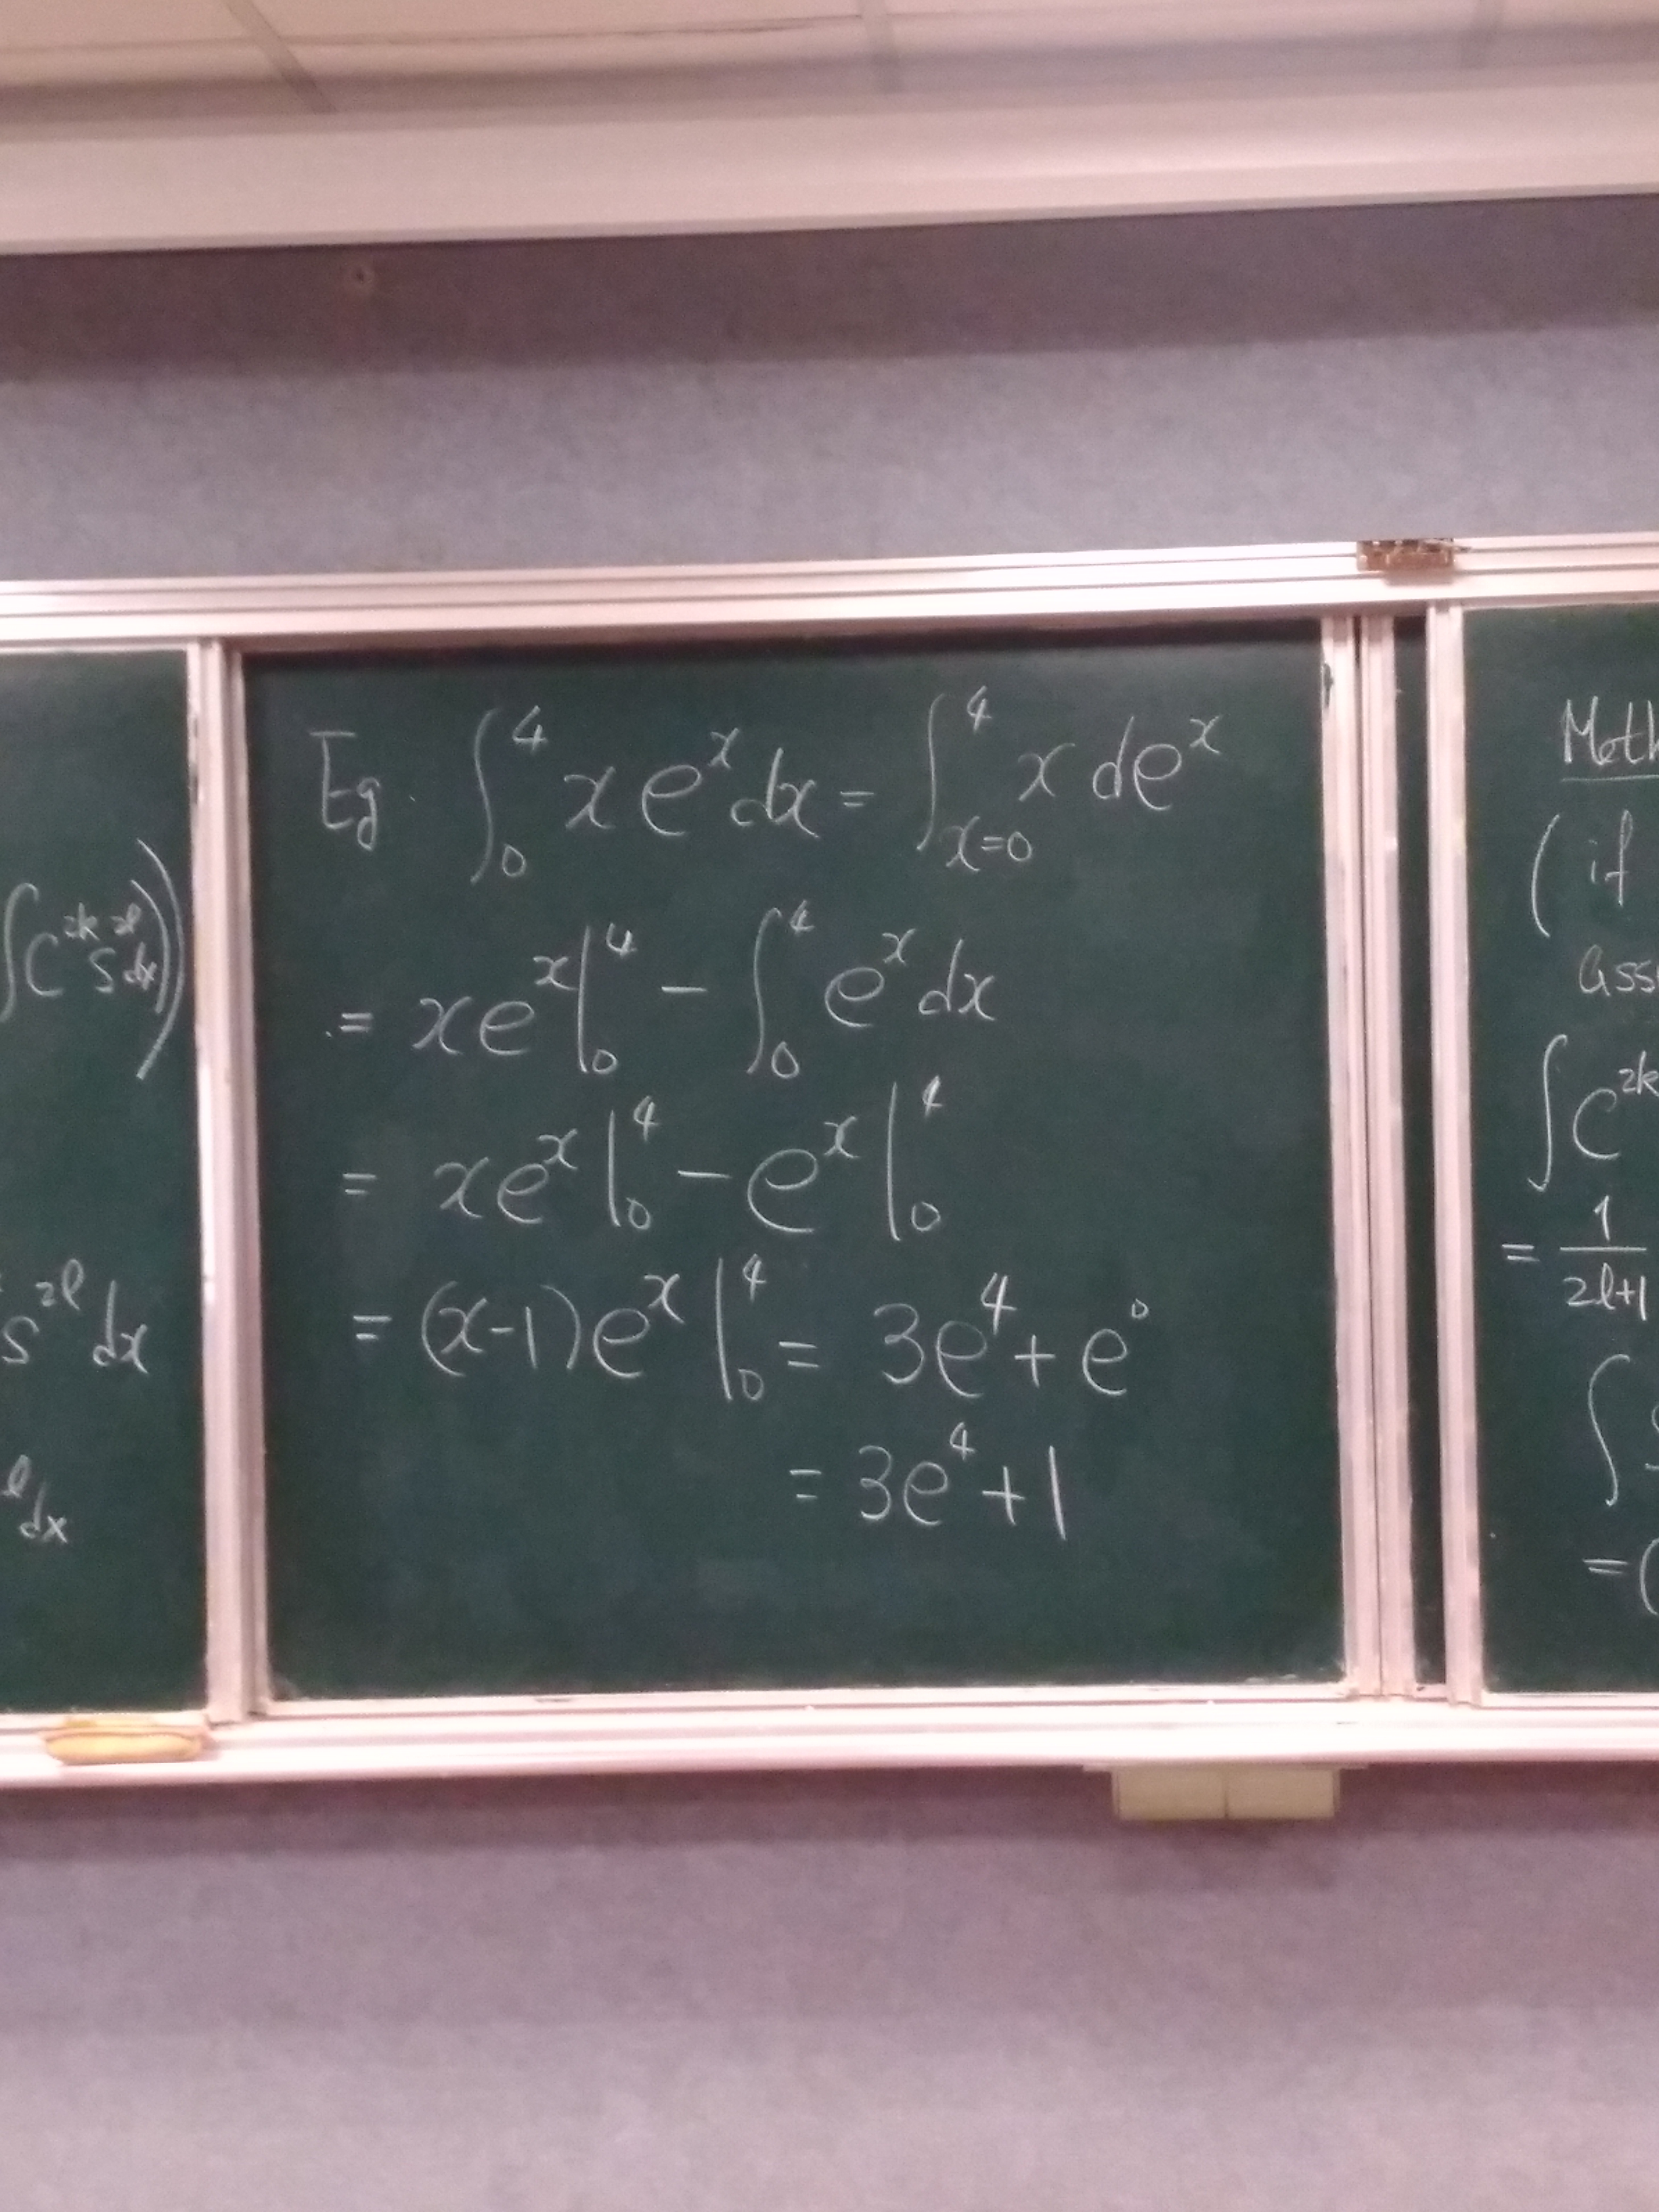 ∫C^{2k} S^{2l} dx)
S^{2l} dx
^{l} dx
Eg. ∫_0^4 x e^x dx = ∫_{x=0}^4 x de^x
= xe^x |_0^4 - ∫_0^4 e^x dx
= xe^x |_0^4 - e^x |_0^4
= (x-1)e^x |_0^4 = 3e^4 + e^0
= 3e^4 + 1
Meth
( if
ass
∫C^{2k}
= 1/(2l+1)
∫
= (